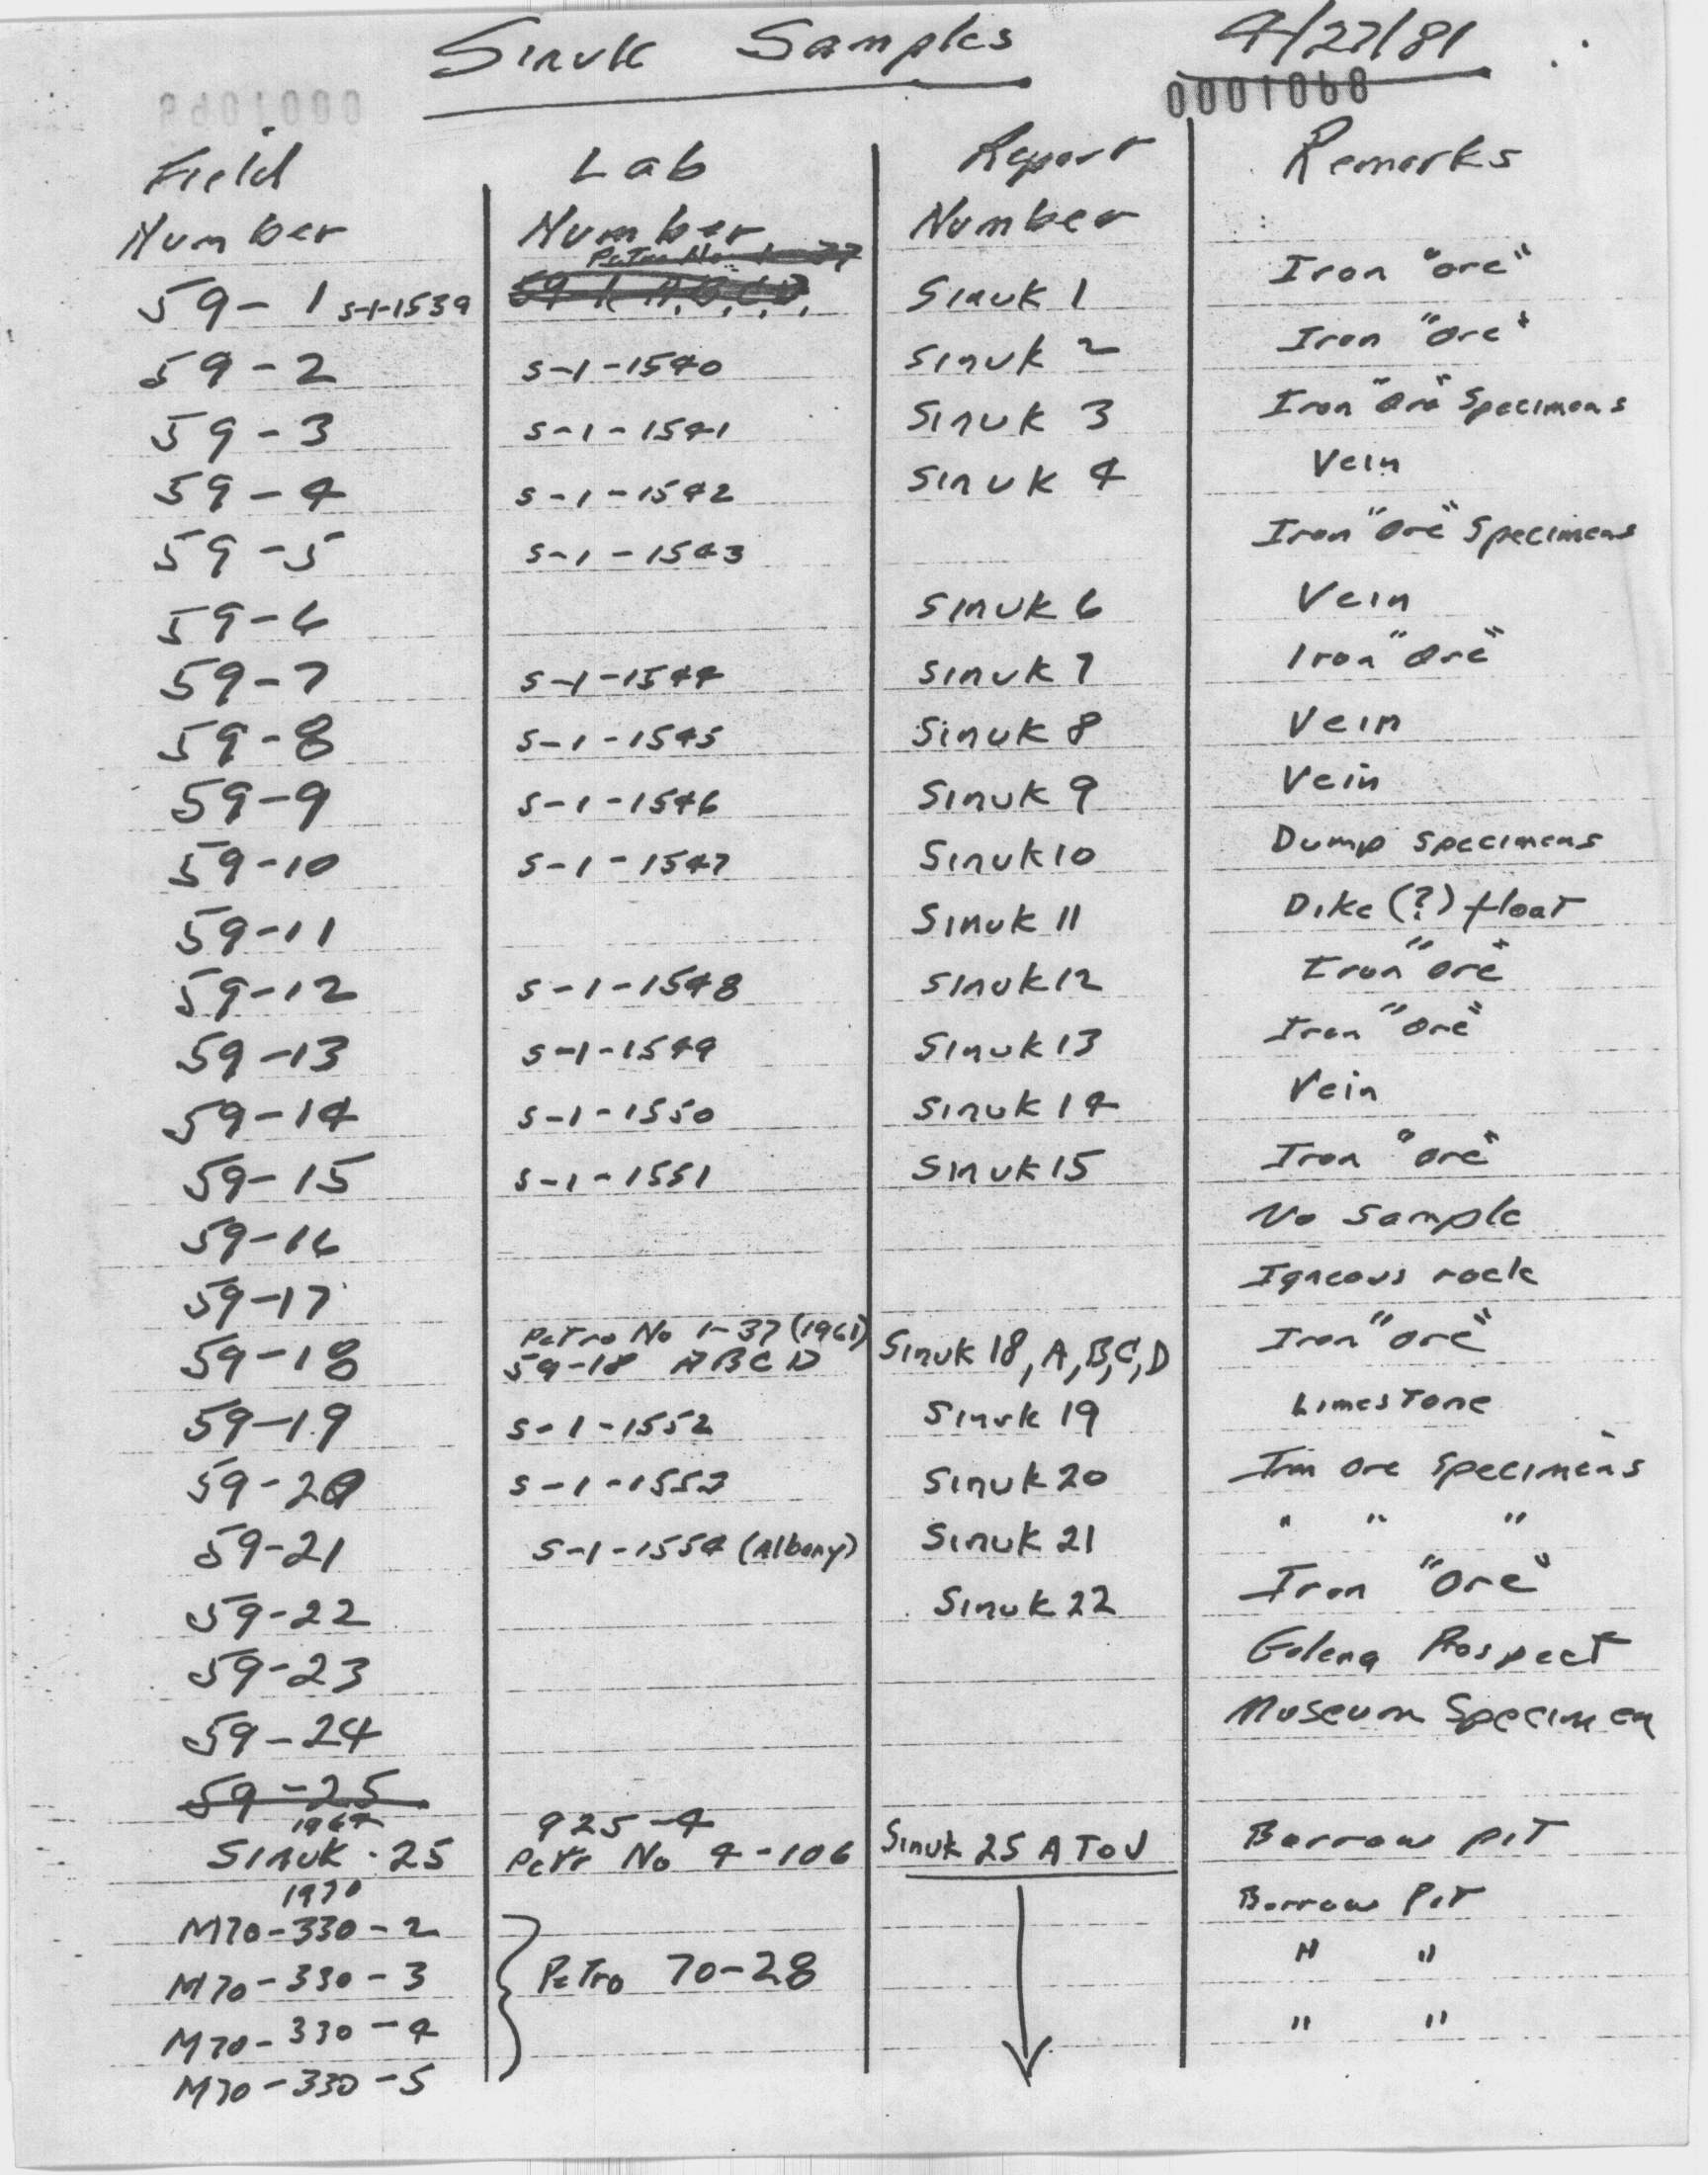 Sinuk Samples 4/27/81
0001068
Field Number Lab Number Report Number Remarks
Petro No 1-37
59-1 S-1-1539 Sinuk 1 Iron "ore"
59-2 S-1-1540 Sinuk 2 Iron "Ore"
59-3 S-1-1541 Sinuk 3 Iron "Ore" Specimens
59-4 S-1-1542 Sinuk 4 Vein
59-5 S-1-1543 Iron "Ore" Specimens
59-6 Sinuk 6 Vein
59-7 S-1-1544 Sinuk 7 Iron "Ore"
59-8 S-1-1545 Sinuk 8 Vein
59-9 S-1-1546 Sinuk 9 Vein
59-10 S-1-1547 Sinuk 10 Dump Specimens
59-11 Sinuk 11 Dike (?) float
59-12 S-1-1548 Sinuk 12 Iron "Ore"
59-13 S-1-1549 Sinuk 13 Iron "Ore"
59-14 S-1-1550 Sinuk 14 Vein
59-15 S-1-1551 Sinuk 15 Iron "Ore"
59-16 No Sample
59-17 Igneous rock
Petro No 1-37 (1961)
59-18 59-18 A B C D Sinuk 18, A, B, C, D Iron "Ore"
59-19 S-1-1552 Sinuk 19 Limestone
59-20 S-1-1553 Sinuk 20 Iron Ore Specimens
59-21 S-1-1554 (Albany) Sinuk 21 " " "
59-22 Sinuk 22 Iron "Ore"
59-23 Galena Prospect
59-24 Museum Specimen
59-25
1967 925-4
Sinuk · 25 Petr No 4-106 Sinuk 25 A To J Borrow pit
1970
M70-330-2 Borrow Pit
M70-330-3 Petro 70-28 " "
M70-330-4 " "
M70-330-5